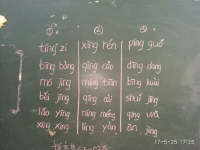 ① ② ③
tíng zi xíng rén píng guǒ
bīng báng qīng cǎo dīng dāng
mò jìng míng tiān bīng kuài
bèi jǐng qīng cài shuǐ jīng
lǎo yīng níng méng qīng wā
xīng xing líng yàn jǐng
17-5-25 17:35